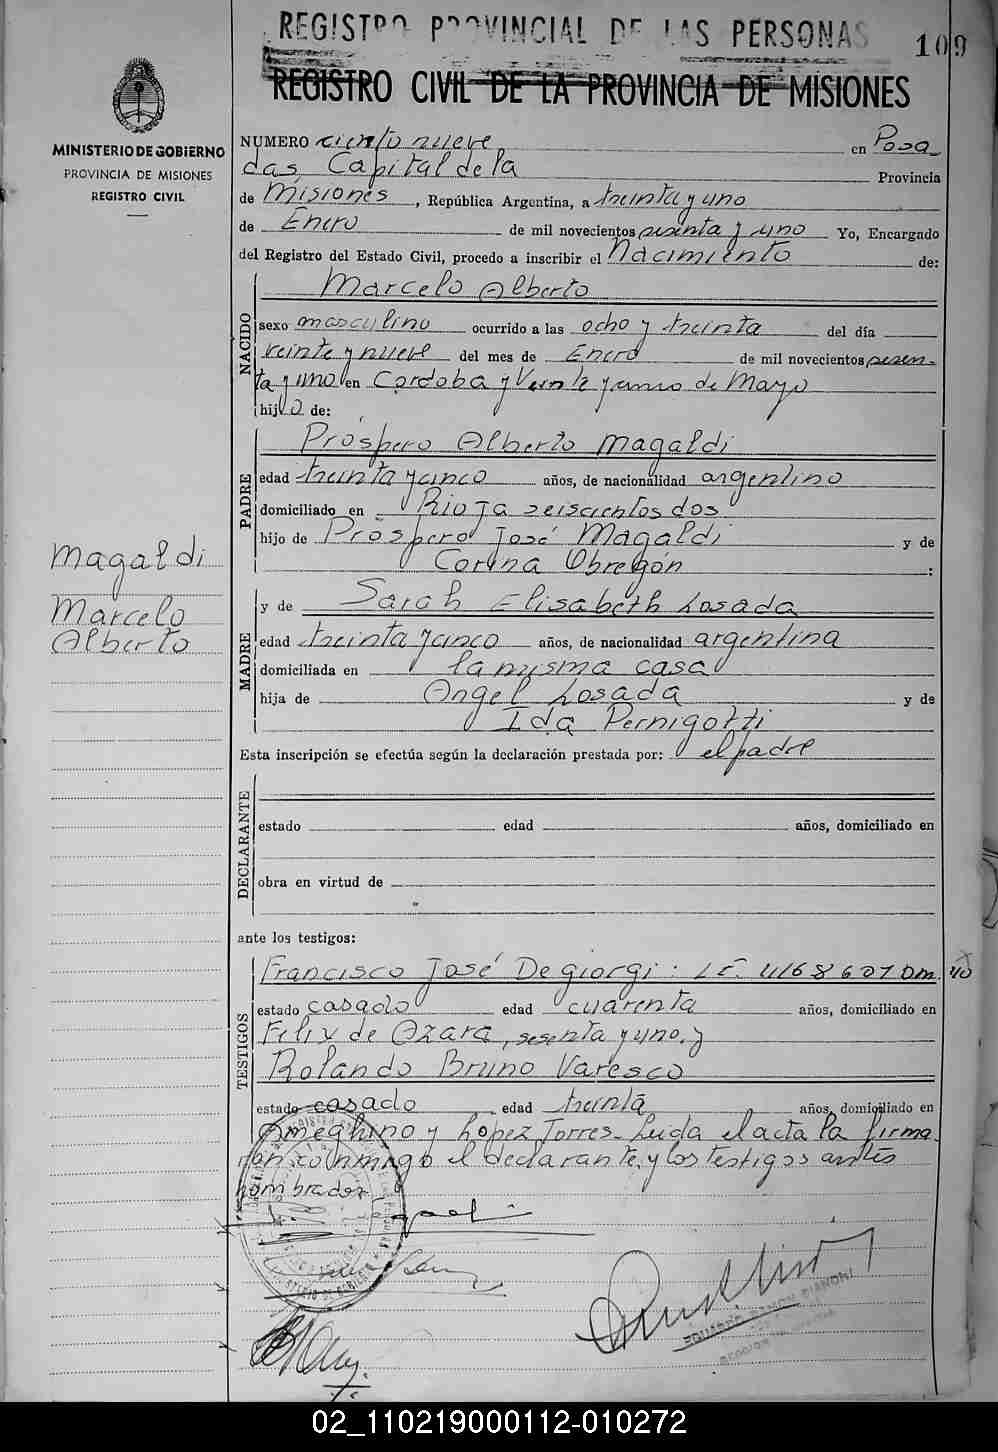 REGISTRO PROVINCIAL DE LAS PERSONAS
109
REGISTRO CIVIL DE LA PROVINCIA DE MISIONES
MINISTERIO DE GOBIERNO
PROVINCIA DE MISIONES
REGISTRO CIVIL
NUMERO ciento nueve en Posa
das Capital de la Provincia
de Misiones, República Argentina, a treinta y uno
de Enero de mil novecientos sesenta y uno Yo, Encargado
del Registro del Estado Civil, procedo a inscribir el Nacimiento de:
NACIDO
Marcelo Alberto
sexo masculino ocurrido a las ocho y treinta del día
veinte y nueve del mes de Enero de mil novecientos sesen-
ta y uno en Cordoba y Veinte y cinco de Mayo
hijo de:
PADRE
Próspero Alberto Magaldi
edad treinta y cinco años, de nacionalidad argentino
domiciliado en Rioja seiscientos dos
hijo de Próspero José Magaldi y de
Corina Obregón :
Magaldi
Marcelo
Alberto
MADRE
y de Sarah Elisabeth Losada
edad treinta y cinco años, de nacionalidad argentina
domiciliada en la misma casa
hija de Angel Losada y de
Ida Pernigotti
Esta inscripción se efectúa según la declaración prestada por: el padre
DECLARANTE
estado edad años, domiciliado en
obra en virtud de
ante los testigos:
TESTIGOS
Francisco José De Giorgi: L.E. 4168607 Dm. 40
estado casado edad cuarenta años, domiciliado en
Felix de Azara, sesenta y uno, y
Rolando Bruno Varesco
estado casado edad treinta años, domiciliado en
Ameghino y Lopez Torres. Leida el acta la firma
ron conmigo el declarante y los testigos antes
nombrados
EDUARDO RAMON BIANCHI
02_110219000112-010272